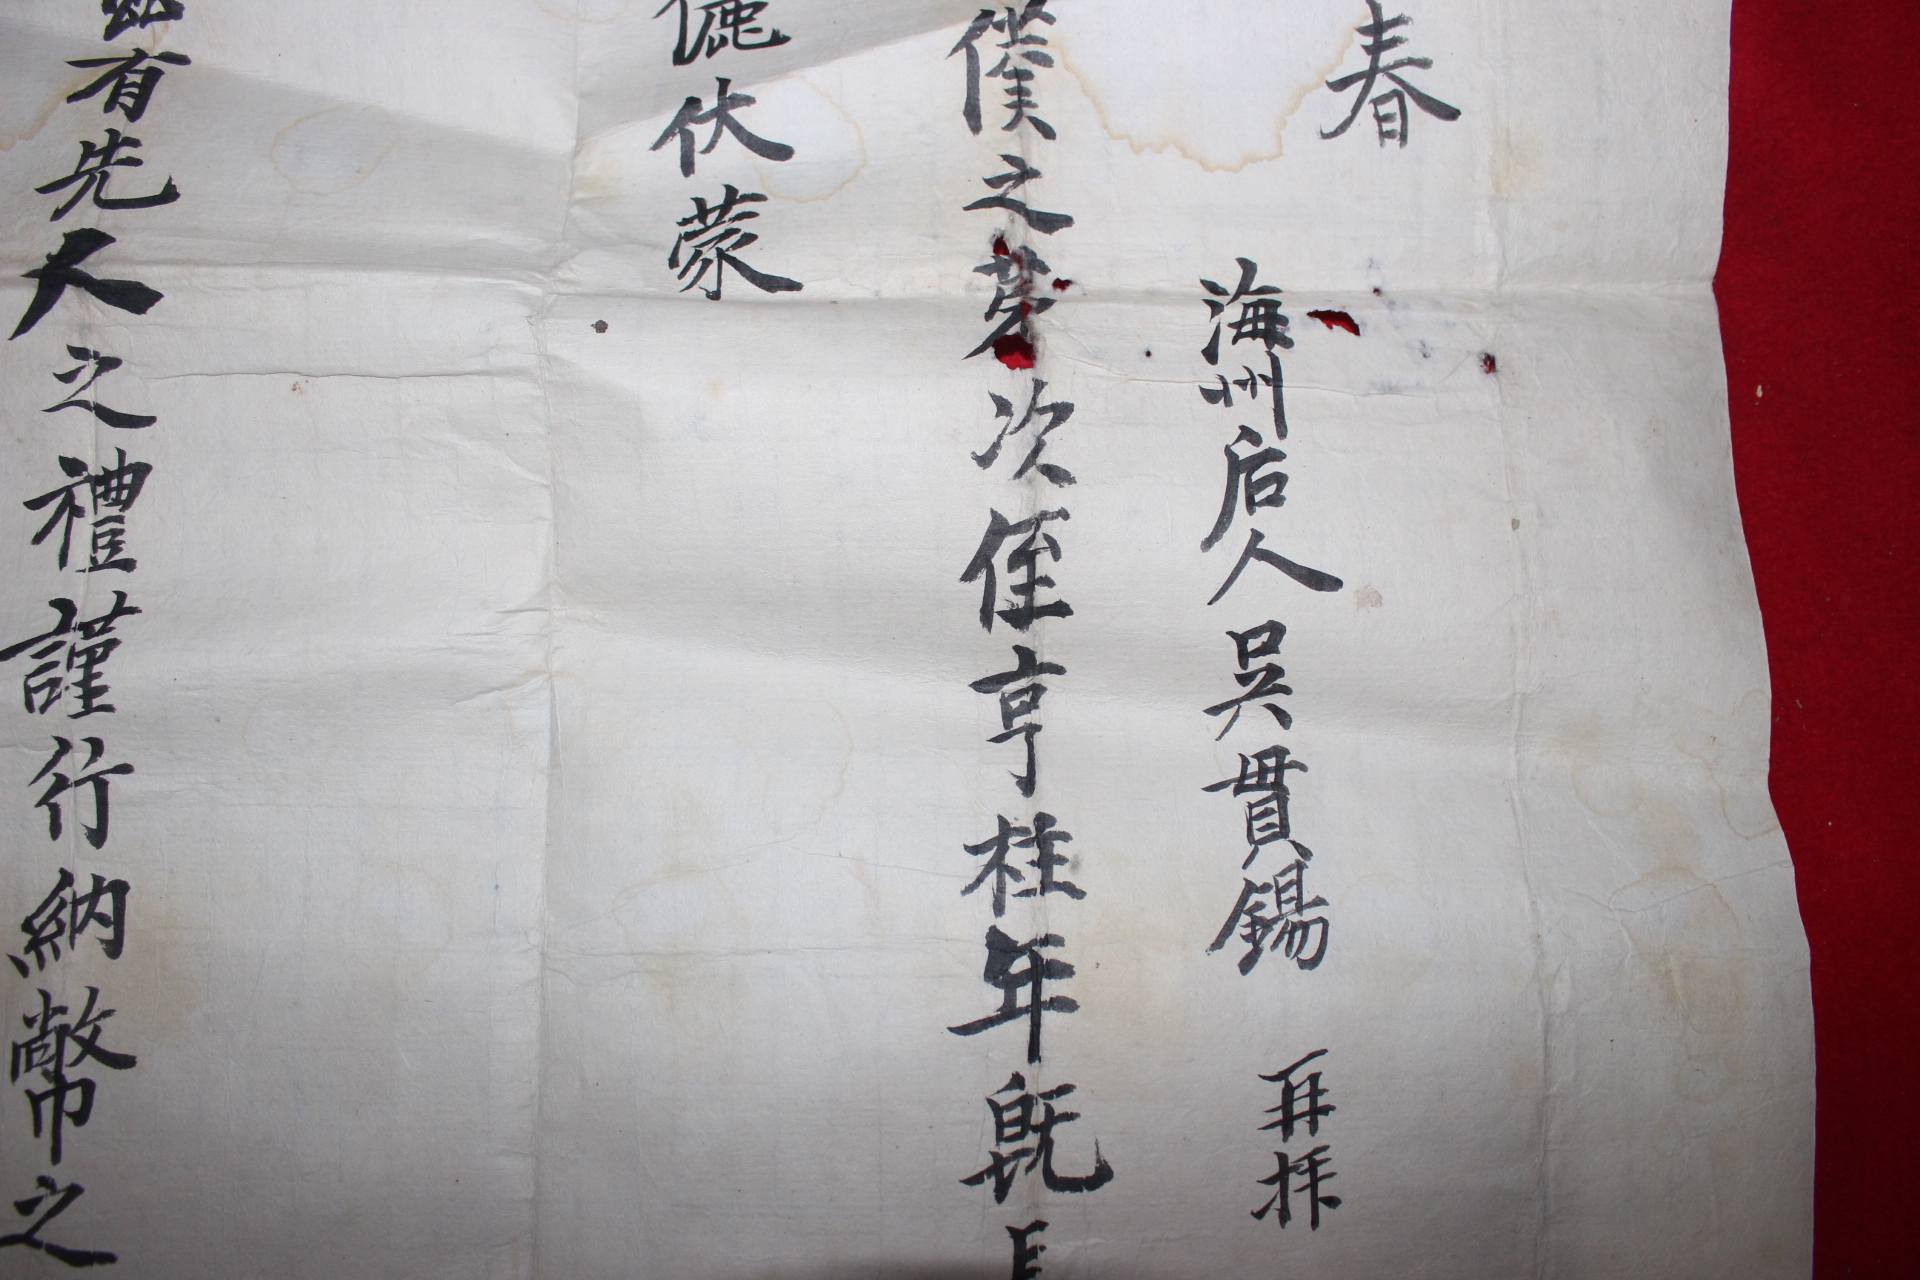 春
海州后人吳貫錫 再拜
僕之弟次侄亨柱年旣長
儷伏蒙
玆有先人之禮謹行納幣之